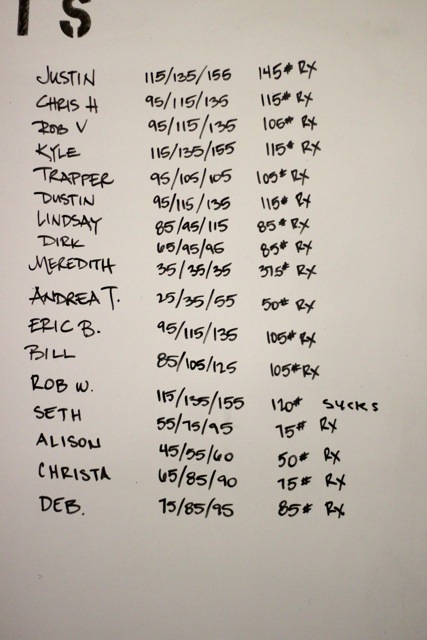 TS
JUSTIN 115/135/155 145# RX
CHRIS H 95/115/135 115# RX
ROB V 95/115/135 105# RX
KYLE 115/135/155 115# RX
TRAPPER 95/105/105 105# RX
DUSTIN 95/115/135 115# RX
LINDSAY 85/95/115 85# RX
DIRK 65/95/95 85# RX
MEREDITH 35/35/35 37.5# RX
ANDREA T. 25/35/55 50# RX
ERIC B. 95/115/135 105# RX
BILL 85/105/125 105# RX
ROB W. 115/135/155 120# SUCKS
SETH 55/75/95 75# RX
ALISON 45/55/60 50# RX
CHRISTA 65/85/90 75# RX
DEB. 75/85/95 85# RX